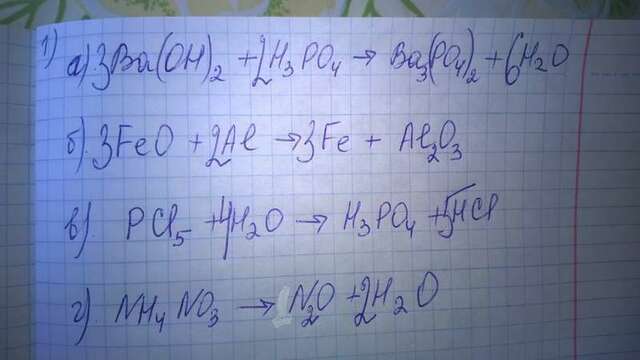 1) а) 3Ba(OH)₂ + 2H₃PO₄ → Ba₃(PO₄)₂ + 6H₂O
б) 3FeO + 2Al → 3Fe + Al₂O₃
в) PCl₅ + 4H₂O → H₃PO₄ + 5HCl
г) NH₄NO₃ → N₂O + 2H₂O